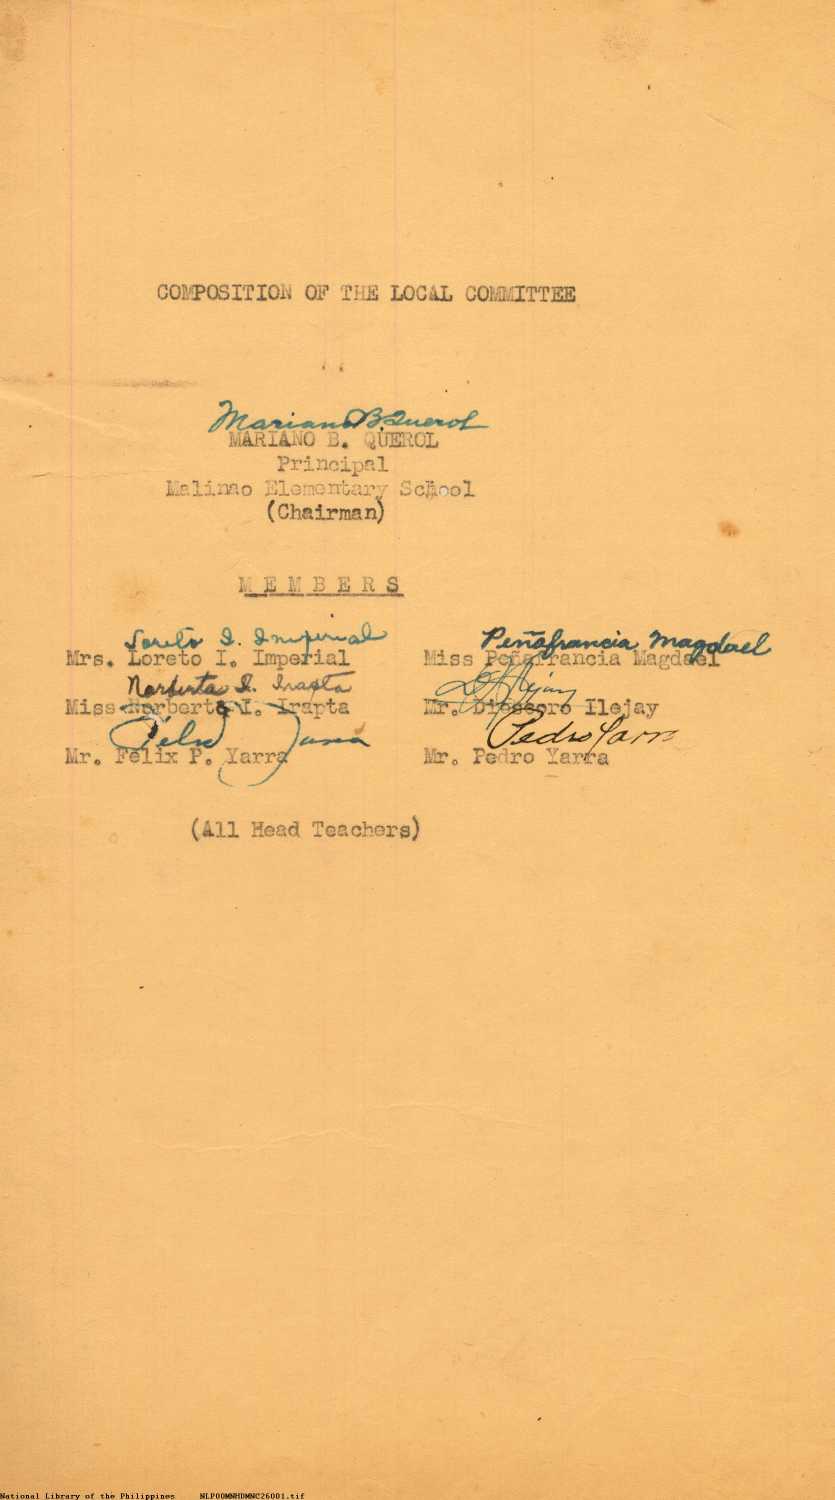 COMPOSITION OF THE LOCAL COMMITTEE
Mariano B. Querol
MARIANO B. QUEROL
Principal
Malinao Elementary School
(Chairman)
MEMBERS
Loreto I. Imperial Peñafrancia Magdael
Mrs. Loreto I. Imperial Miss Peñafrancia Magdael
Norberta I. Irapta
Miss Norberta I. Irapta Mr. Diosdoro Ilejay
Felix Yarra Pedro Yarra
Mr. Felix P. Yarra Mr. Pedro Yarra
(All Head Teachers)
National Library of the Philippines NLP00MNHDMNC26001.tif